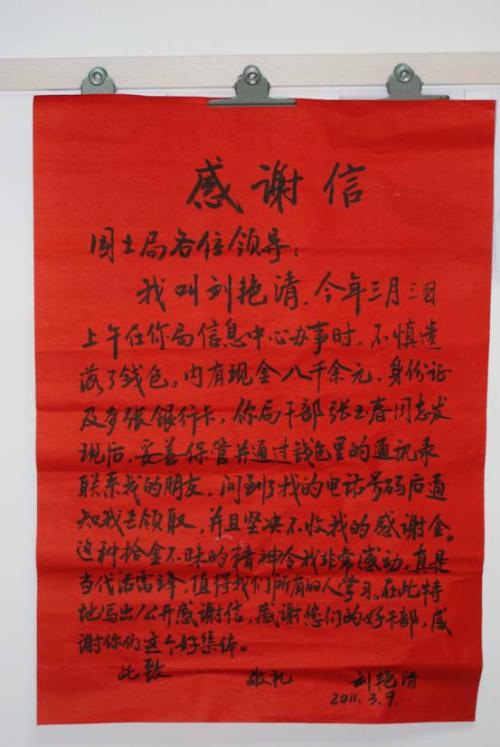 感谢信
国土局各位领导：
我叫刘艳清，今年三月三日
上午在你局信息中心办事时，不慎遗
落了钱包。内有现金八千余元，身份证
及多张银行卡，你局干部张玉春同志发
现后，妥善保管并通过钱包里的通讯录
联系我的朋友，问到了我的电话号码后通
知我去领取，并且坚决不收我的感谢金。
这种拾金不昧的精神令我非常感动，真是
当代活雷锋，值得我们所有的人学习。在此特
地写出公开感谢信，感谢您们的好干部，感
谢你们这个好集体。
此致 敬礼 刘艳清
2011.3.9.